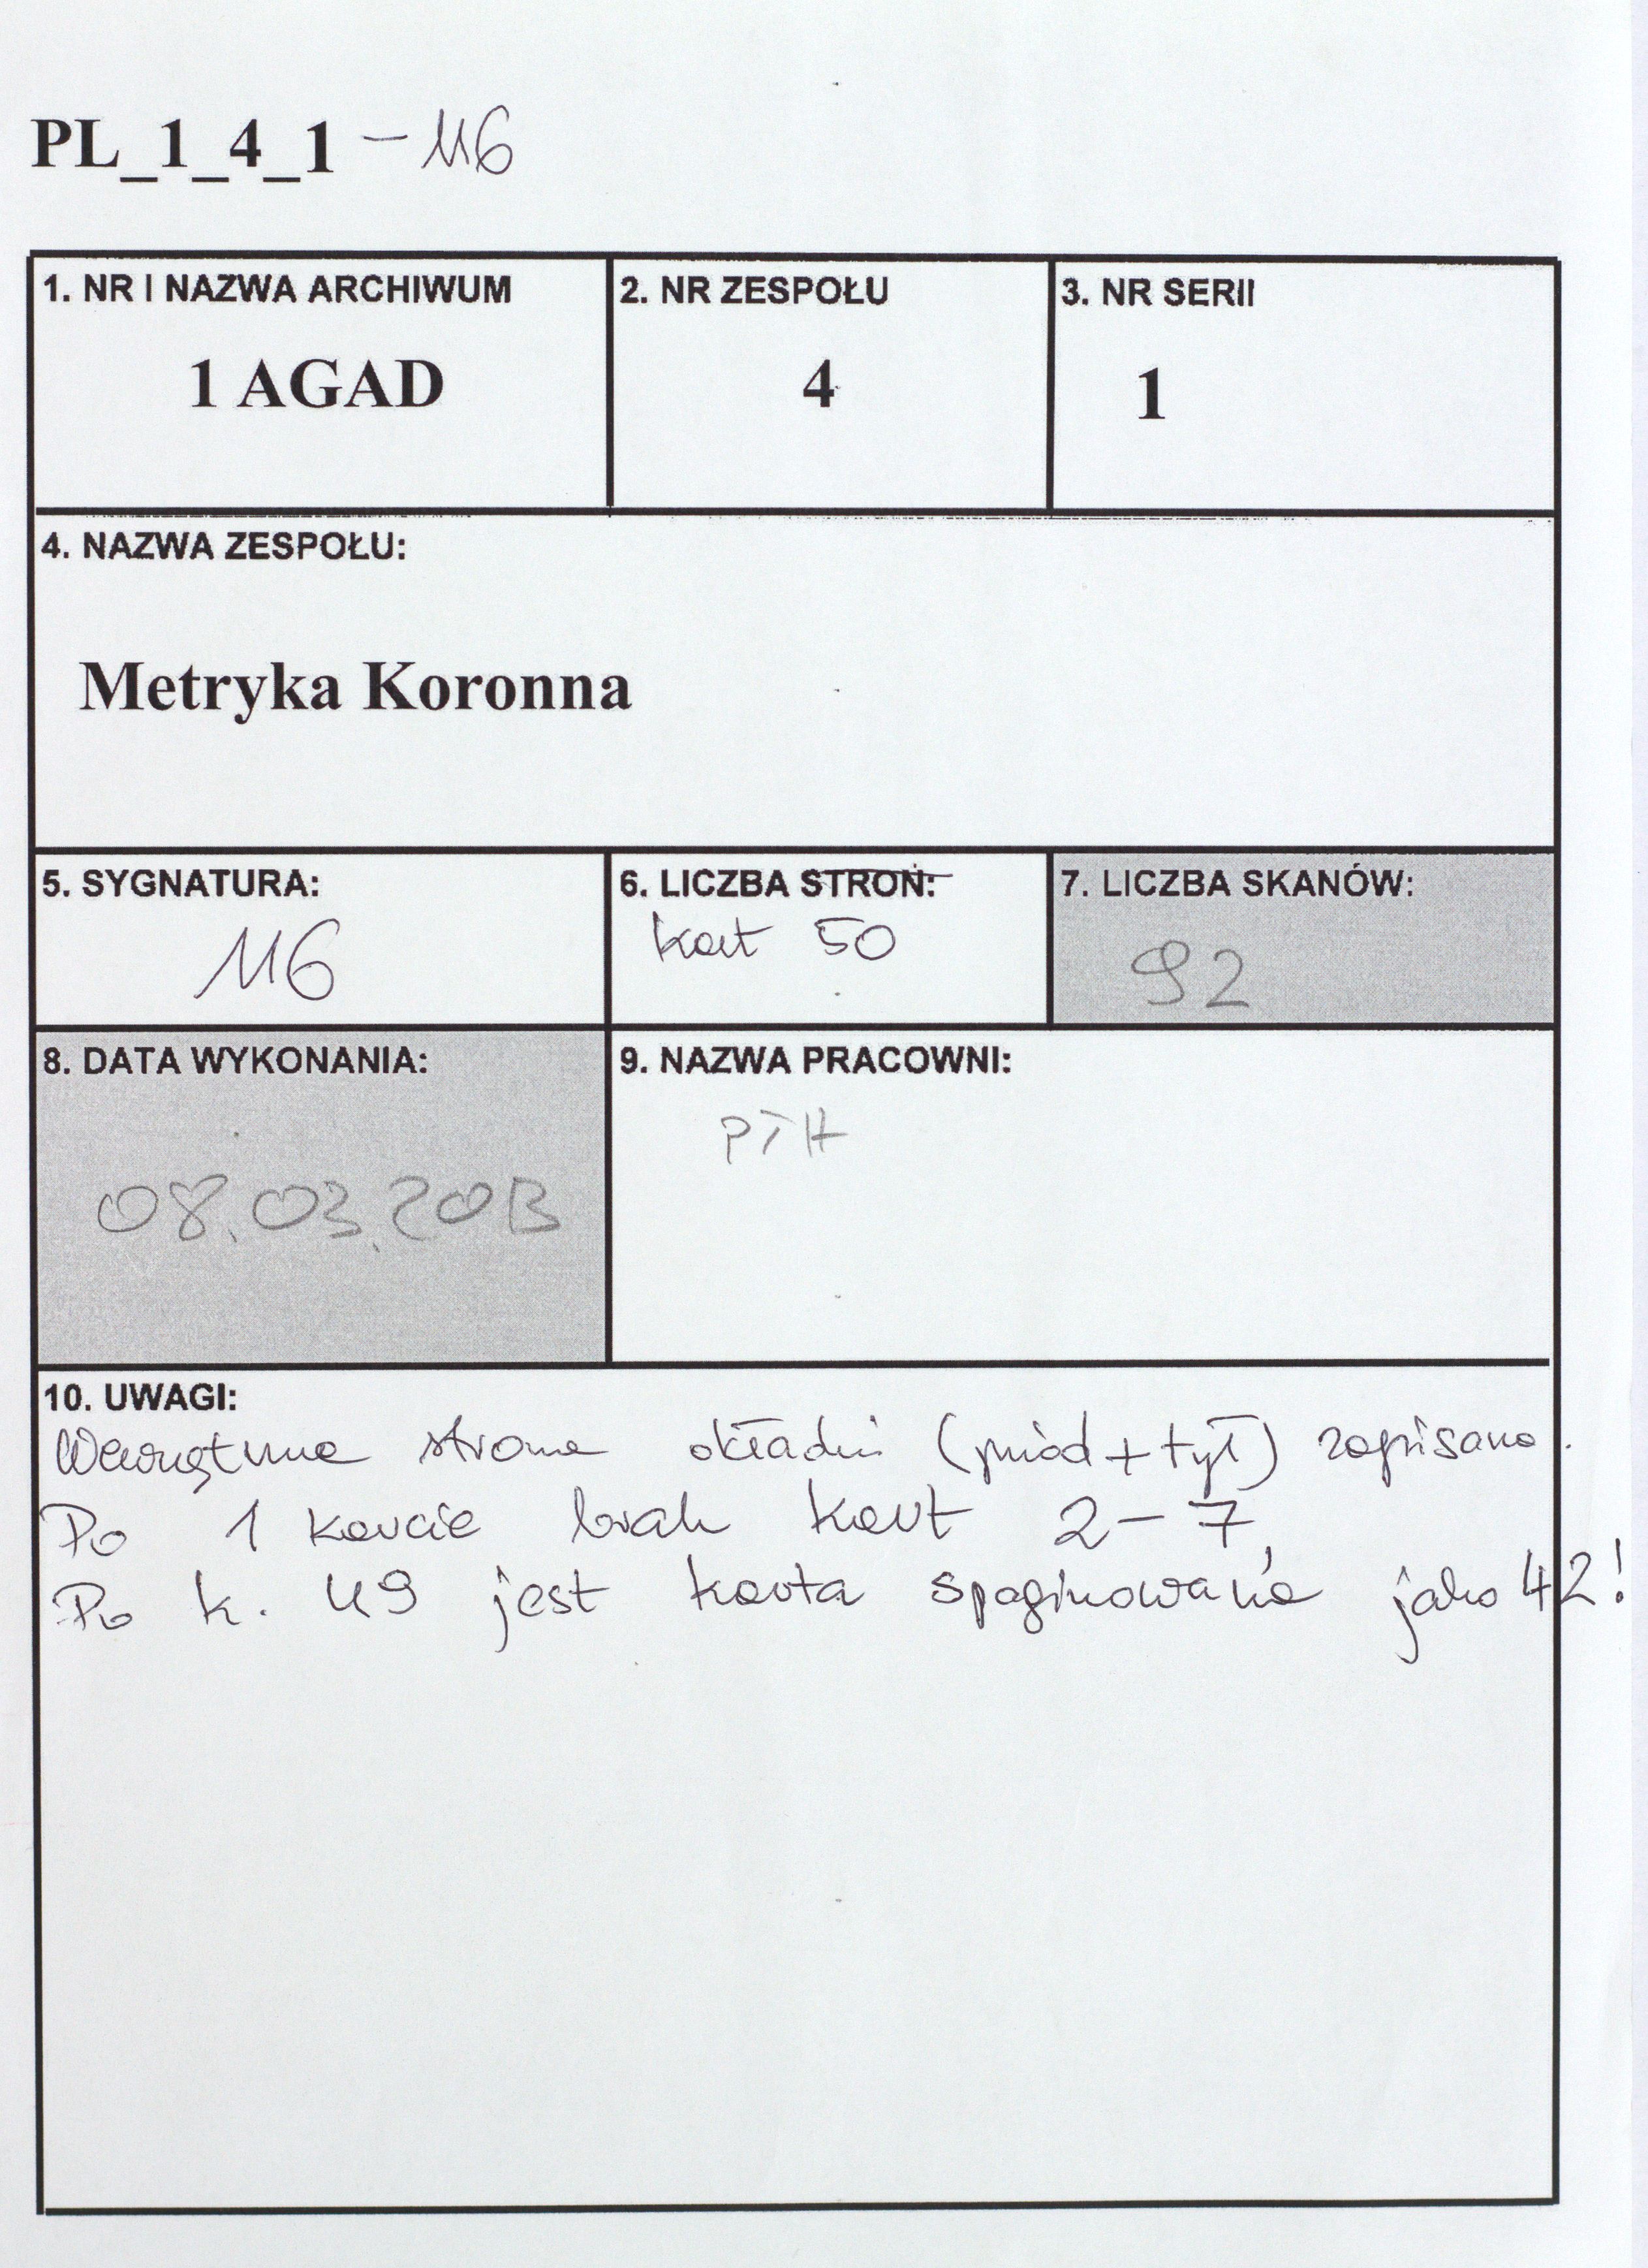 PL_1_4_1 – 116
1. NR I NAZWA ARCHIWUM
1 AGAD
2. NR ZESPOŁU
4
3. NR SERII
1
4. NAZWA ZESPOŁU:
Metryka Koronna
5. SYGNATURA:
116
6. LICZBA STRON:
kart 50
7. LICZBA SKANÓW:
92
8. DATA WYKONANIA:
08.03.2013
9. NAZWA PRACOWNI:
PTH
10. UWAGI:
Wewnętrzna strona okładki (przód + tył) zapisana.
Po 1 karcie brak kart 2–7,
Po k. 49 jest karta spaginowana jako 42!